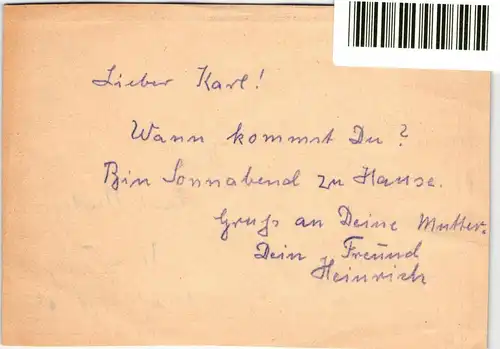 Lieber Karl!
Wann kommst Du?
Bin Sonnabend zu Hause.
Gruß an Deine Mutter.
Dein Freund
Heinrich